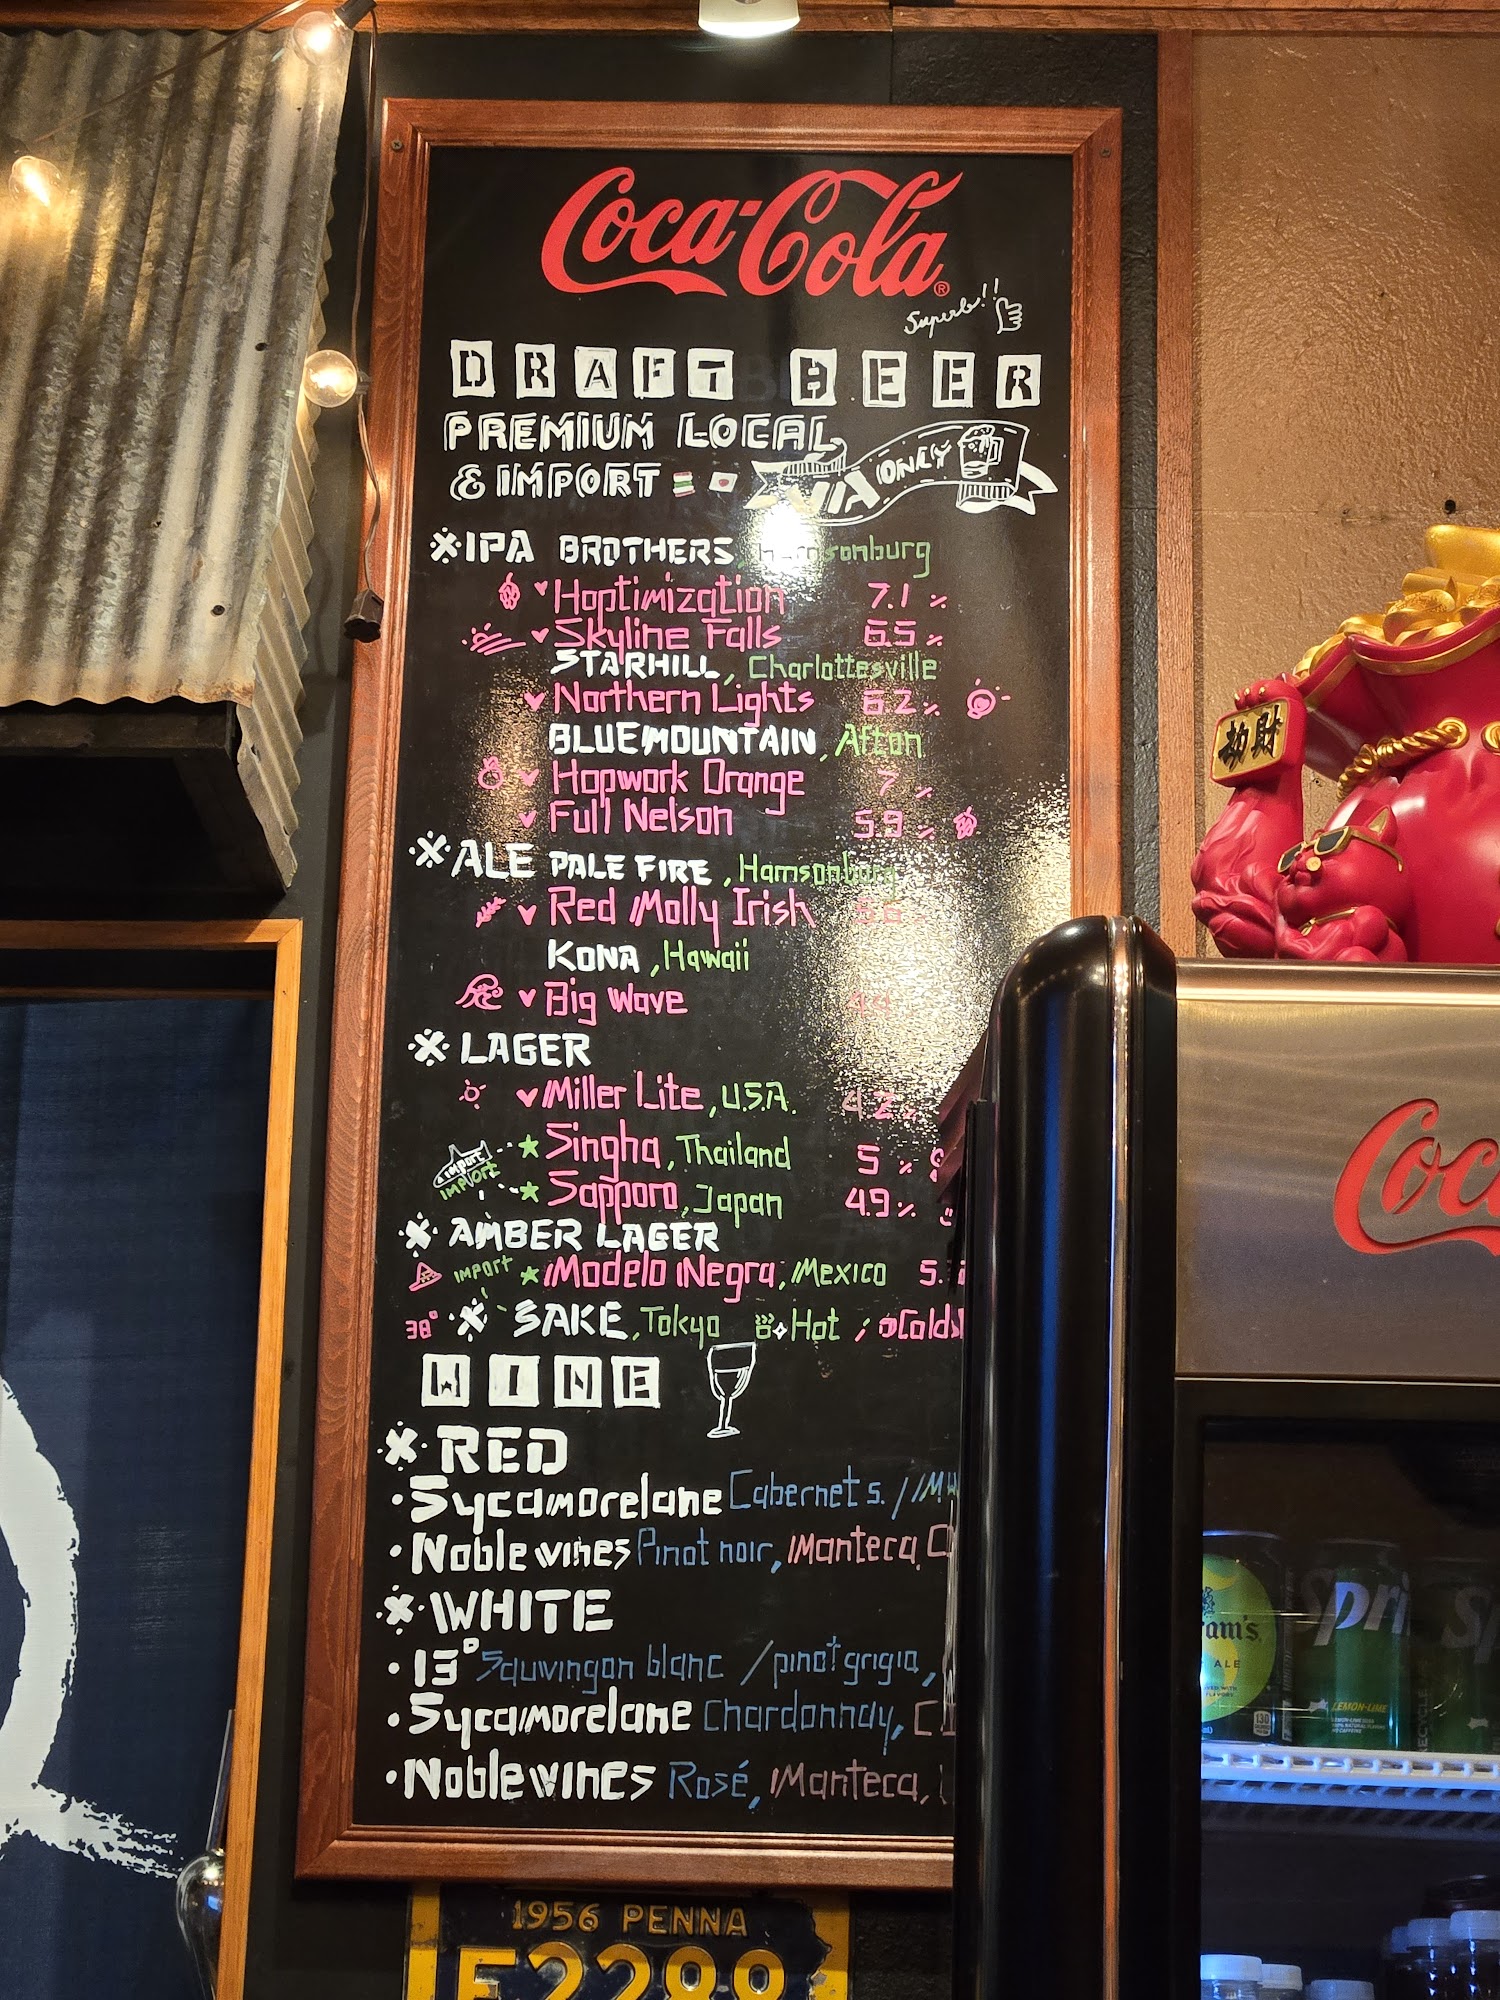 Coca-Cola®
Superb!!
DRAFT BEER
PREMIUM LOCAL
& IMPORT
ONLY
IPA BROTHERS,
Hoptimization 7.1 %
Skyline Falls 6.5 %
STARHILL, Charlottesville
Northern Lights 6.2 %
BLUEMOUNTAIN, Afton
Hopwork Orange 7 %
Full Nelson 5.9 %
ALE PALE FIRE, Harrisonburg
Red Molly Irish
KONA, Hawaii
Big Wave
LAGER
Miller Lite, U.S.A. 4.2 %
import
IMPORT
Singha, Thailand 5 %
Sapporo, Japan 4.9 %
AMBER LAGER
IMPORT Modelo Negra, Mexico
38° SAKE, Tokyo Hot / Cold
WINE
RED
Sycamorelane Cabernet s. /
Noblewines Pinot noir, Manteca,
WHITE
13° Sauvingon blanc / pinot grigio,
Sycamorelane Chardonnay,
Noblewines Rosé, Manteca,
1956 PENNA
財
LEMON-LIME
ALE
RECYCLE
130